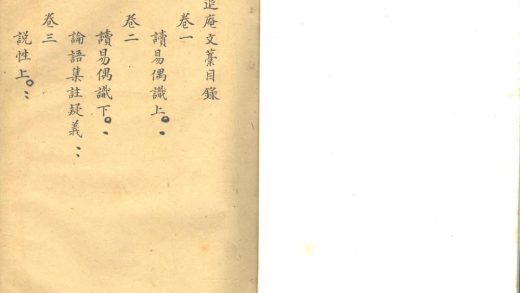 追庵文藁目錄
卷一
讀易偶識上
卷二
讀易偶識下
論語集註疑義
卷三
説性上